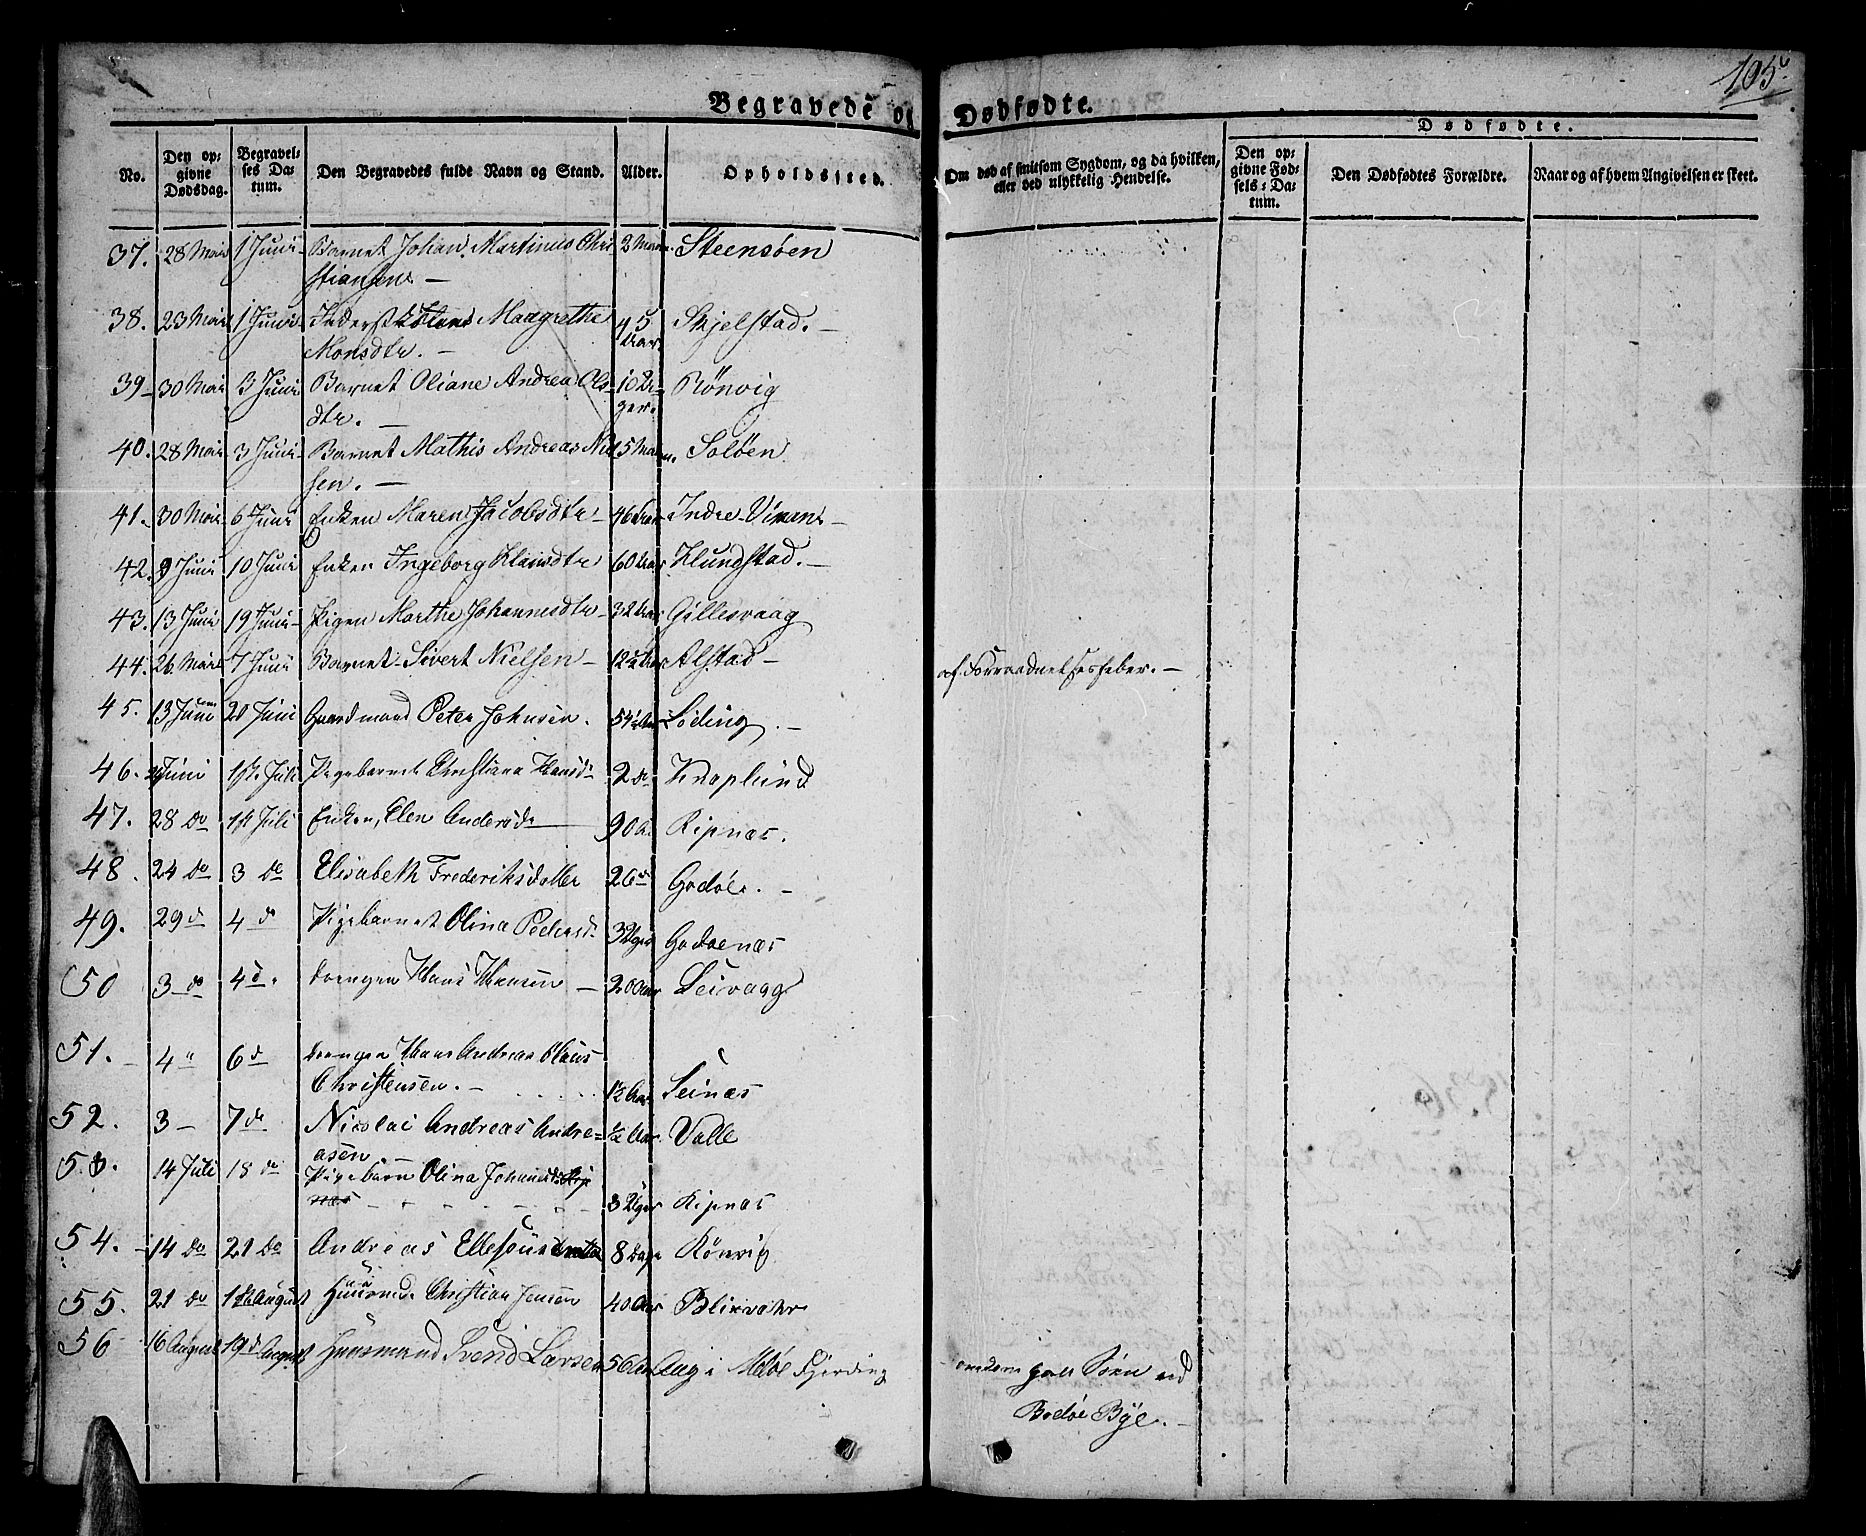 105
Begravede og Dødfødte.
Dødfødte.
No.
Den opgivne Dødsdag.
Begravelses Datum.
Den Begravedes fulde Navn og Stand.
Alder.
Opholdssted.
Om død af smitsom Sygdom, og da hvilken, eller ved ulykkelig Hendelse.
Den opgivne Fødsels-Datum.
Den Dødfødtes Forældre.
Naar og af hvem Angivelsen er skeet.
37. 28 Mai 1 Juni Barnet Johan Martinus Chri- 2 Maan. Steensøen
stiansen –
38. 23 Mai 1 Juni Margrethe 45 Aar. Skjelstad. –
Monsdtr. –
39 – 30 Mai 3 Juni Barnet Oliane Andrea Ols- 10 Uger. Rönvig
dtr. –
40. 28 Mai 3 Juni Barnet Mathis Andreas Niel- 5 Maan. Soløen
sen. –
41. 30 Mai 6 Juni Enken Maren Jacobsdtr – 46 Aar Indre-
42. 9 Juni 10 Juni Enken Ingeborg Klausdtr 60 Aar Klundstad. –
43. 13 Juni 19 Juni Pigen Marthe Johannesdtr 32 Aar Gillesvaag
44. 26 Mai 7 Juni Barnet Sivert Nielsen – 12½ Aar Alstad – af Forraadnelsesfeber. –
45. 13 Juni 20 Juni Gaardmand Peter Johnsen. 54 Aar Løding. –
46. Juni 1ste Juli Pigebarnet Christiana Hansd 2 do Knaplund
47. 28 do 1st Juli Enken, Elen Andersd 90 A. Ripnæs.
48. 24 do 3 do Elisabeth Frederiksdatter 26 d Godøe. –
49. 29 d 4 d Pigebarnet Olina Pedersd. 3 Uger Godøenæs
50 3 do 4 d. drengen Hans Hansen – 20 Aar Seivaag
51. 4 " 6 d drengen Hans Andreas Olaus
Christensen. – 1½ Aar Seinæs
52. 3 – 7 do Nicolai Andreas Andre- ½ Aar. Valle
asen. –
53. 14 Juli 18 do Pigebarn Olina Johannesd Rip
næs 3 Uger Ripnæs
54. 14 do 21 do Andreas 8 Dage Rönvig
55. 21 do 1 August Huusmd. Christian Jensen 40 Aar Blixvær
56 16 August 19 d August Huusmand Svend Larsen 56 Aar Aug i Fjerding omkom paa Søen ved
Bodøe Bye. –